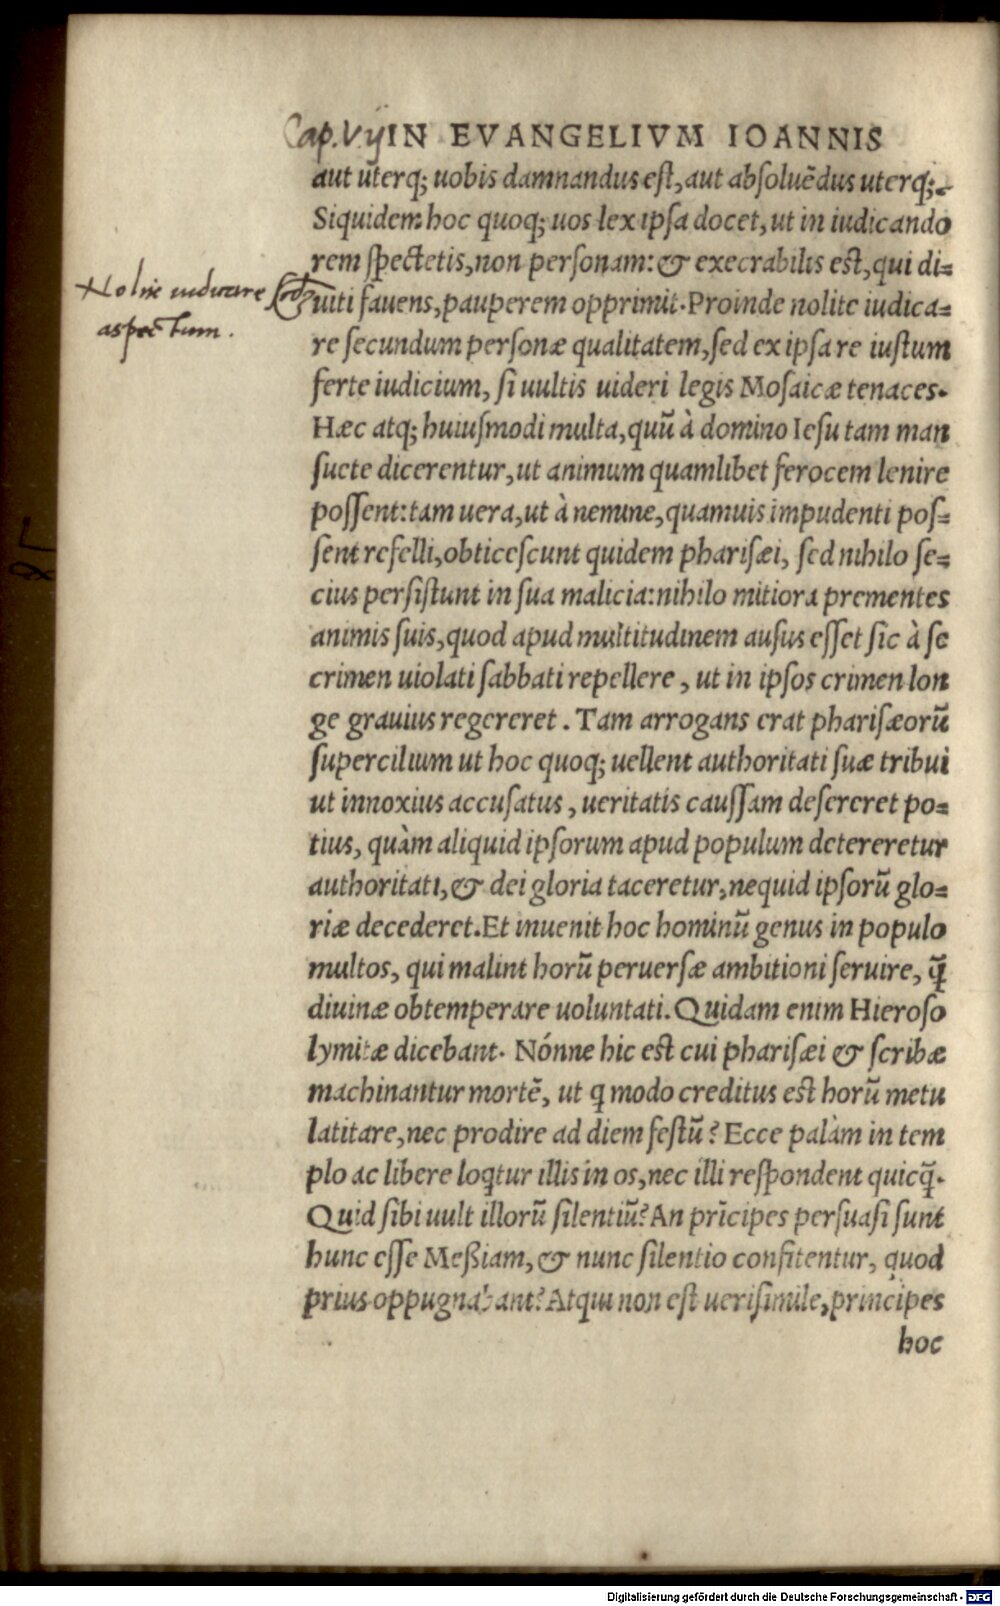 Cap. Vij IN EVANGELIVM IOANNIS
aut uterq; uobis damnandus est, aut absoluẽdus uterq;.
Siquidem hoc quoq; uos lex ipsa docet, ut in iudicando
rem spectetis, non personam: & execrabilis est, qui di=
uiti fauens, pauperem opprimit. Proinde nolite iudica=
re secundum personæ qualitatem, sed ex ipsa re iustum
ferte iudicium, si uultis uideri legis Mosaicæ tenaces.
Hæc atq; huiusmodi multa, quũ à domino Iesu tam man
suete dicerentur, ut animum quamlibet ferocem lenire
possent: tam uera, ut à nemine, quamuis impudenti pos=
sent refelli, obticescunt quidem pharisæi, sed nihilo se=
cius persistunt in sua malicia: nihilo mitiora prementes
animis suis, quod apud multitudinem ausus esset sic à se
crimen uiolati sabbati repellere, ut in ipsos crimen lon
ge grauius regereret. Tam arrogans erat pharisæorũ
supercilium ut hoc quoq; uellent authoritati suæ tribui
ut innoxius accusatus, ueritatis caussam desereret po=
tius, quàm aliquid ipsorum apud populum detereretur
authoritati, & dei gloria taceretur, nequid ipsorũ glo=
riæ decederet. Et inuenit hoc hominũ genus in populo
multos, qui malint horũ peruersæ ambitioni seruire, q̃
diuinæ obtemperare uoluntati. Quidam enim Hieroso
lymitæ dicebant. Nónne hic est cui pharisæi & scribæ
machinantur mortẽ, ut q modo creditus est horũ metu
latitare, nec prodire ad diem festũ? Ecce palàm in tem
plo ac libere loqtur illis in os, nec illi respondent quicq̃.
Quid sibi uult illorũ silentiũ? An prĩcipes persuasi sunt
hunc esse Meßiam, & nunc silentio confitentur, quod
prius oppugnabant? Atqui non est uerisimile, principes
hoc
Nolite iudicare scdz
aspectum.
Digitalisierung gefördert durch die Deutsche Forschungsgemeinschaft - DFG